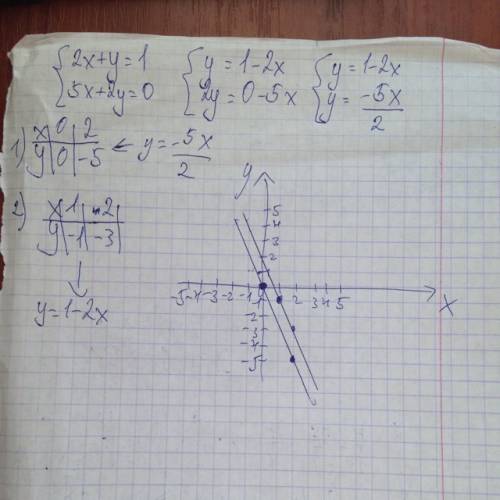 {2x+y=1 {y=1-2x {y=1-2x
{5x+2y=0 {2y=0-5x {y=-5x/2
1) x|0|2
y|0|-5 ← y=-5x/2
2) x|1|2|
y|-1|-3|
y=1-2x
y
5
4
3
2
-5 -4 -3 -2 -1 1 2 3 4 5 x
-2
-3
-4
-5